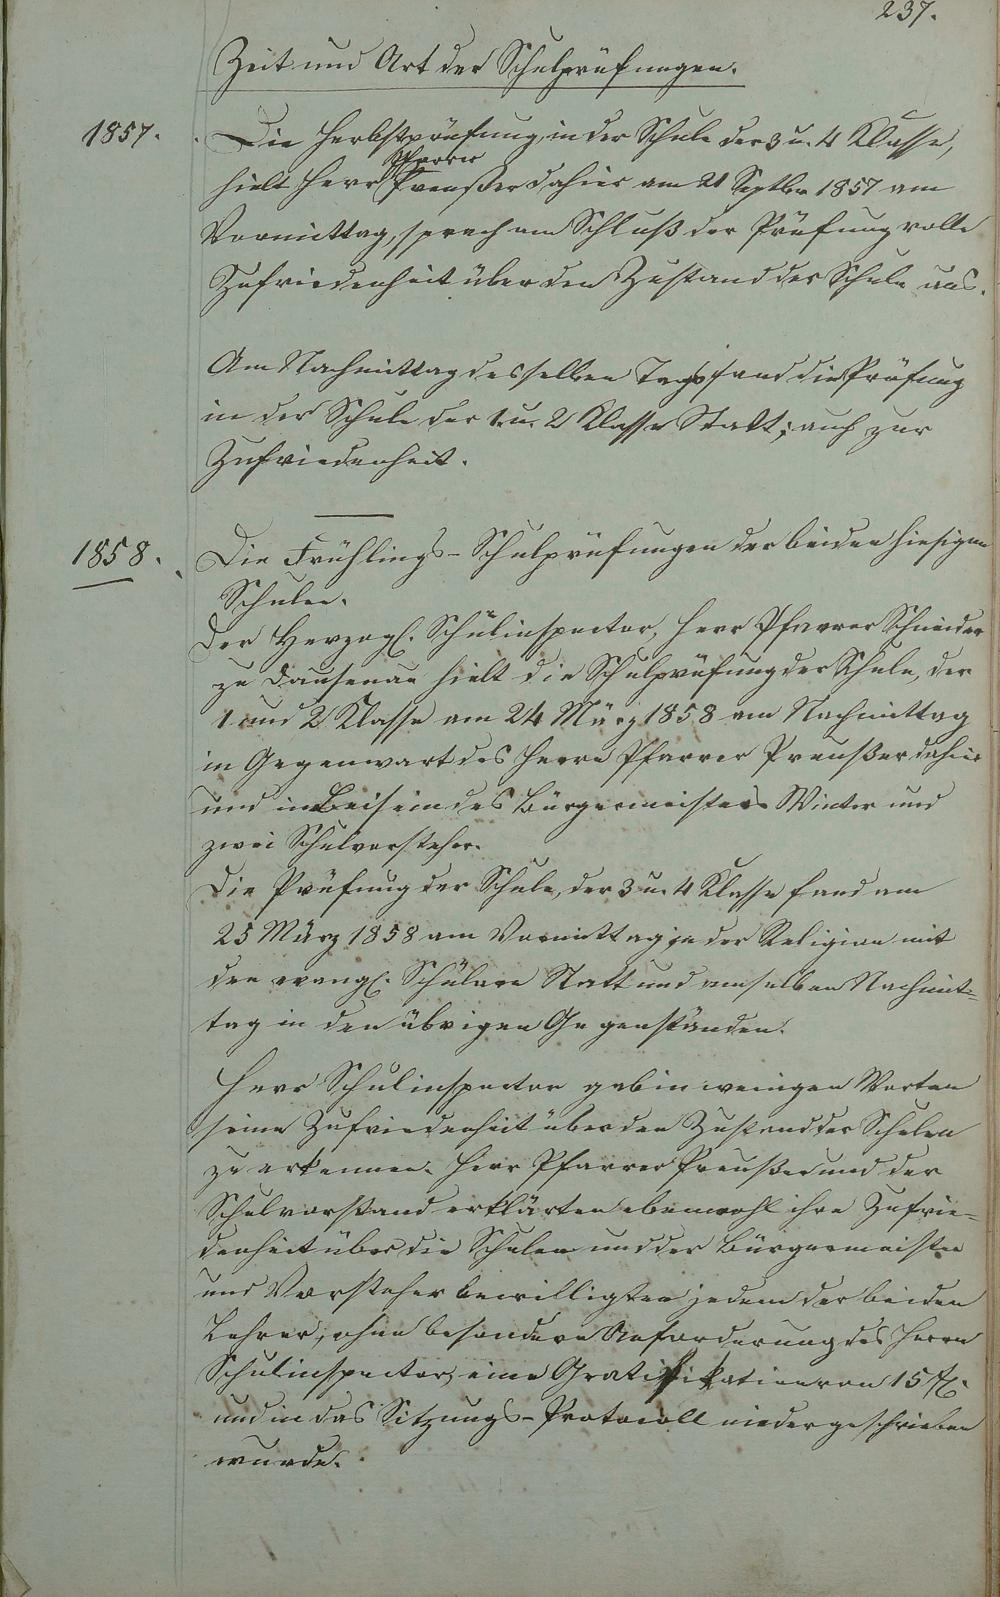 237.
Zeit und Art der Schulprüfungen.
1857.
Die Herbstprüfung, in der Schule der 3 u. 4 Klasse,
Pfarrer
hielt Herr Preußer dahier am 21 Septbr 1857 am
Vormittag, sprach am Schluß der Prüfung volle
Zufriedenheit über den Zustand der Schule aus.
Am Nachmittag desselben Tags fand die Prüfung
in der Schule der 1. u. 2 Klasse Statt; auch zur
Zufriedenheit.
1858.
Die Frühlings-Schulprüfungen der beiden hiesigen
Schulen.
Der Herzogl. Schulinspector, Herr Pfarrer Schneider
zu Dausenau hielt die Schulprüfung der Schule, der
1 und 2 Klasse am 24 März 1858 am Nachmittag
in Gegenwart des Herrn Pfarrer Preußer dahier
und im Beisein des Bürgermeisters Winter und
zwei Schulvorsteher.
Die Prüfung der Schule, der 3 u. 4 Klasse fand am
25 März 1858 am Vormittag in der Religion mit
den evangl. Schülern Statt und am selben Nachmit-
tag in den übrigen Gegenständen.
Herr Schulinspector gab in wenigen Worten
seine Zufriedenheit über den Zustand der Schulen
zu erkennen. Herr Pfarrer Preußer und der
Schulvorstand erklärten ebenwohl ihre Zufrie-
denheit über die Schulen und der Bürgermeister
und Vorsteher bewilligten jedem der beiden
Lehrer, ohne besondere Aufforderung des Herrn
Schulinspector, eine Gratifikation von 15 fl.
und in das Sitzungs-Protocoll niedergeschrieben
wurde.